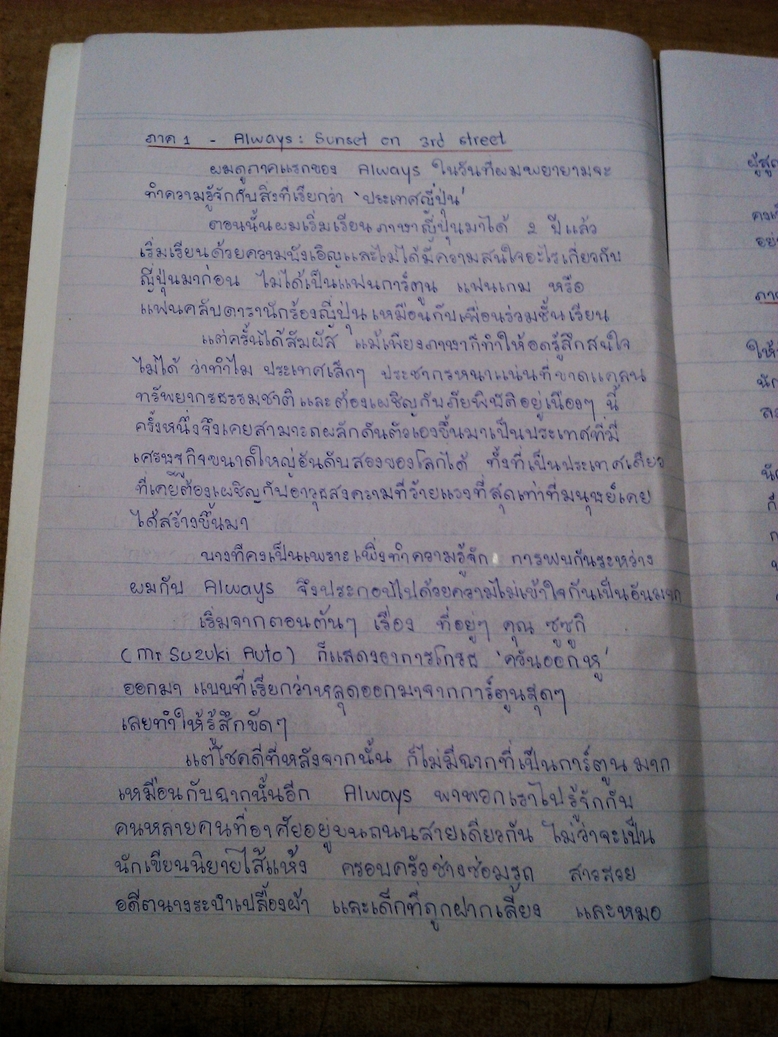 ภาค 1 - Always: Sunset on 3rd street
ผมดูภาคแรกของ Always ในวันที่ผมพยายามจะ
ทำความรู้จักกับสิ่งที่เรียกว่า 'ประเทศญี่ปุ่น'
ตอนนั้นผมเริ่มเรียนภาษาญี่ปุ่นมาได้ 2 ปีแล้ว
เริ่มเรียนด้วยความบังเอิญและไม่ได้มีความสนใจอะไรเกี่ยวกับ
ญี่ปุ่นมาก่อน ไม่ได้เป็นแฟนการ์ตูน แฟนเกม หรือ
แฟนคลับดารานักร้องญี่ปุ่นเหมือนกับเพื่อนร่วมชั้นเรียน
แต่ครั้นได้สัมผัส แม้เพียงภาษาก็ทำให้อดรู้สึกสนใจ
ไม่ได้ ว่าทำไม ประเทศเล็กๆ ประชากรหนาแน่นที่ขาดแคลน
ทรัพยากรธรรมชาติและต้องเผชิญกับภัยพิบัติอยู่เนืองๆ นี้
ครั้งหนึ่งจึงเคยสามารถผลักดันตัวเองขึ้นมาเป็นประเทศที่มี
เศรษฐกิจขนาดใหญ่อันดับสองของโลกได้ ทั้งที่เป็นประเทศเดียว
ที่เคยต้องเผชิญกับอาวุธสงครามที่ร้ายแรงที่สุดเท่าที่มนุษย์เคย
ได้สร้างขึ้นมา
บางทีคงเป็นเพราะเพิ่งทำความรู้จัก การพบกันระหว่าง
ผมกับ Always จึงประกอบไปด้วยความไม่เข้าใจกันเป็นอันมาก
เริ่มจากตอนต้นๆ เรื่อง ที่อยู่ๆ คุณ ซูซูกิ
(Mr Suzuki Auto) ก็แสดงอาการโกรธ 'ควันออกหู'
ออกมา แบบที่เรียกว่าหลุดออกมาจากการ์ตูนสุดๆ
เลยทำให้รู้สึกขัดๆ
แต่โชคดีที่หลังจากนั้น ก็ไม่มีฉากที่เป็นการ์ตูนมาก
เหมือนกับฉากนั้นอีก Always พาพวกเราไปรู้จักกับ
คนหลายคนที่อาศัยอยู่บนถนนสายเดียวกัน ไม่ว่าจะเป็น
นักเขียนนิยายไส้แห้ง ครอบครัวช่างซ่อมรถ สาวสวย
อดีตนางระบำเปลื้องผ้า และเด็กที่ถูกฝากเลี้ยง และหมอ